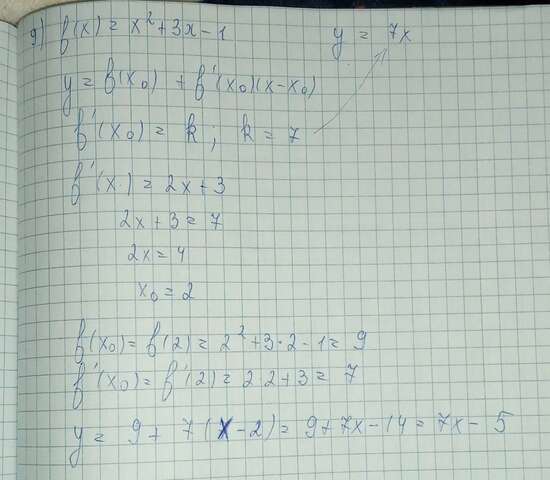 9) f(x) = x² + 3x - 1 y = 7x
y = f(x₀) + f'(x₀)(x - x₀)
f'(x₀) = k ; k = 7
f'(x) = 2x + 3
2x + 3 = 7
2x = 4
x₀ = 2
f(x₀) = f(2) = 2² + 3·2 - 1 = 9
f'(x₀) = f'(2) = 2·2 + 3 = 7
y = 9 + 7(x - 2) = 9 + 7x - 14 = 7x - 5